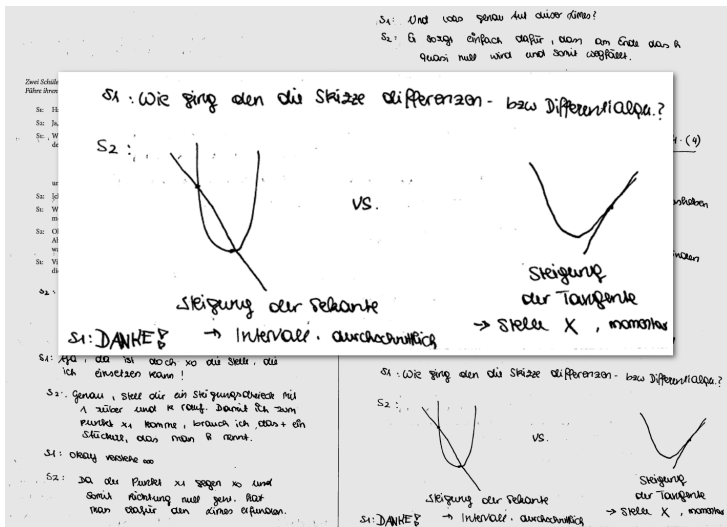 S1: Und was genau tut dieser Limes?
S2: Er sorgt einfach dafür, dass am Ende das h
quasi null wird und somit wegfällt.
Zwei Schüle
Führe ihren
S1:
S2: Ja,
S1: W
de
S2: Ich
S1: W
m
S2:
S1: Vi
die
S2
S1: Wie ging den die Skizze differenzen- bzw Differentialqu.?
S2:
vs.
Steigung der Sekante
→ Intervall. durchschnittlich
Steigung
der Tangente
→ Stelle X, momentan
S1: DANKE!
S1: Aja, da ist doch x0 die Stelle, die
ich einsetzen kann!
S2: Genau, stell dir ein Steigungsdreieck mit
1 rüber und k rauf. Damit ich zum
Punkt x1 komme, brauch ich das + ein
Stückerl, das man h nennt.
S1: Okay verstehe
S2: Da der Punkt x1 gegen x0 und
somit Richtung null geht. Hat
man dafür den Limes erfunden.
S1: Wie ging den die Skizze differenzen- bzw Differentialqu.?
S2:
vs.
Steigung der Sekante
→ Intervall. durchschnittlich
Steigung
der Tangente
→ Stelle X, momentan
S1: DANKE!